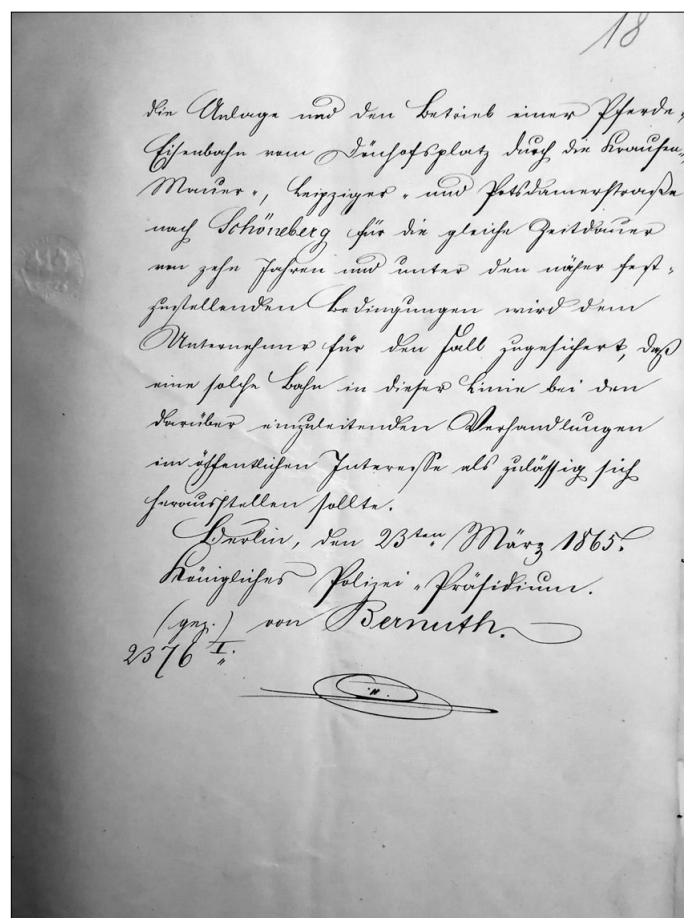 18
die Anlage und den Betrieb einer Pferde-
Eisenbahn vom Dönhofsplatz durch die Krausen-,
Mauer-, Leipziger- und Potsdamerstraße
nach Schöneberg für die gleiche Zeitdauer
von zehn Jahren und unter den näher fest-
zustellenden Bedingungen wird dem
Unternehmer für den Fall zugesichert, daß
eine solche Bahn in dieser Linie bei den
darüber einzuleitenden Verhandlungen
im öffentlichen Interesse als zulässig sich
herausstellen sollte.
Berlin, den 23ten März 1865.
Königliches Polizei-Präsidium.
(gez.) von Bernuth.
2376 I.